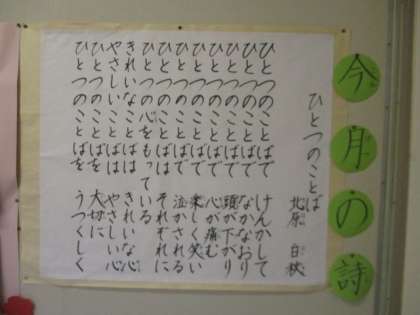 今月の詩
ひとつのことば
北原 白秋
ひとつのことばで けんかして
ひとつのことばで なかなおり
ひとつのことばで 頭が下がり
ひとつのことばで 心が痛む
ひとつのことばで 楽しく笑い
ひとつのことばで 泣かされる
ひとつのことばは それぞれに
ひとつの心をもっている
きれいなことばは きれいな心
やさしいことばは やさしい心
ひとつのことばを 大切に
ひとつのことばを うつくしく